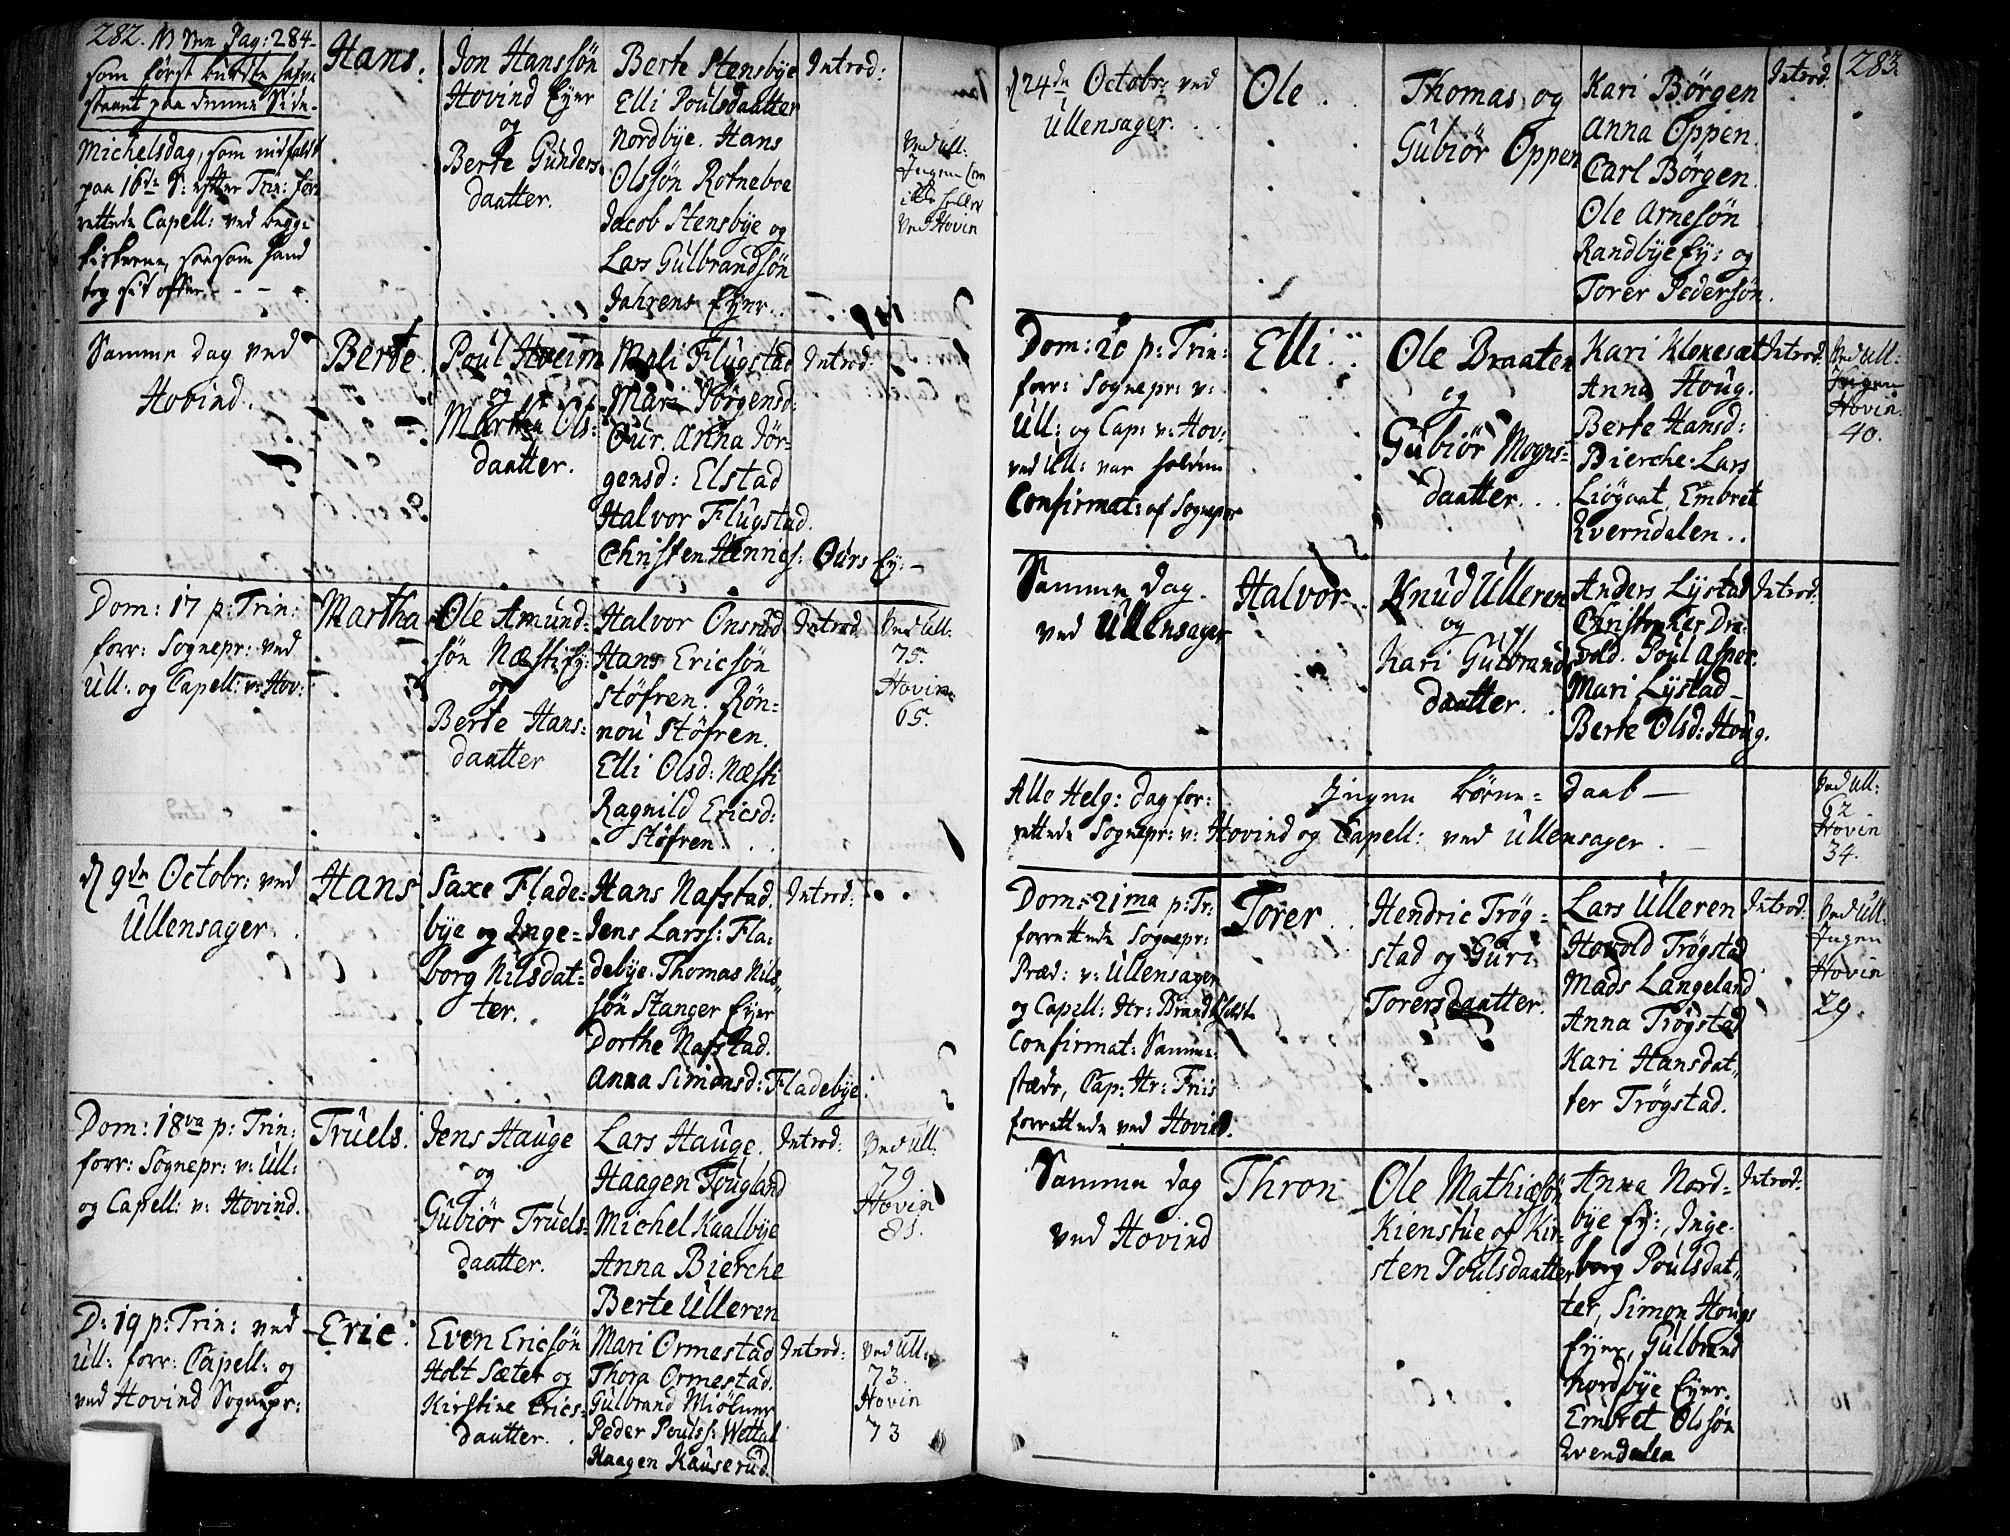 282. NB Pag: 284
som först burde have
staaet paa denne Side
Michelsdag, som indfaldt
paa 16de S: efter Trin: for
rettede Capell: ved begge
Kirkerne, saasom hand
tog sit offer
Hans
Jon Hanssön
Hovind Eyer
og
Berte Gunders
daatter.
Berte Stensbye
Elli Poulsdaatter
Nordbye. Hans
Olssön Rotneboe
Jacob Stensbye og
Lars Gulbrandsön
Jahrens Eyer
Introd:
Ved Ull:
Ingen Com
ved Hovin
Samme dag ved
Hovind.
Berte
Poul Hveim
og
Martha Ols:
daatter.
Mali Flugstad
Mari Jörgensd:
Our. Anna Jör-
gensd: Elstad
Halvor Flugstad.
Christen Henrics: Ours Ey:
Introd:
Dom: 17 p: Trin:
forr: Sognepr: ved
Ull: og Capell: v: Hov:
Martha
Ole Amund-
sön Næsti Ey:
og
Berte Hans:
daatter
Halvor Onsrud
Hans Ericsön
Stöfren. Rön-
nou Stöfren.
Elli Olsd: Næsti
Ragnild Ericsd:
Stöfren.
Introd
Ved Ull:
75.
Hovin
65.
d 9de Octobr: ved
Ullensager.
Hans
Saxe Flade-
bye og Inge-
borg Nilsdat-
ter.
Hans Nafstad.
Jens Larss: Fla-
debye. Thomas Nils
sön Stanger Eyer
Dorthe Nafstad.
Anna Simonsd: Fladebye.
Introd:
Dom: 18va p: Trin:
forr: Sognepr: v: Ull:
og Capell: v: Hovind.
Truels.
Jens Hauge
og
Gubiör Truels-
daatter.
Lars Hauge.
Haagen Fougland
Michel Kaalbye
Anna Bierche
Berte Ulleren
Introd:
Ved Ull.
79
Hovin
81.
D: 19 p: Trin: ved
Ull: forr: Capell: og
ved Hovind Sognepr:
Eric.
Even Ericsön
Holt Sæter og
Kirstine Erics-
daatter.
Mari Ormestad
Thora Ormestad.
Gulbrand Miölner
Peder Poulss: Wettal
Haagen Kauserud.
Introd:
Ved Ull:
73.
Hovin
73
283.
d 24de Octobr: ved
Ullensager.
Ole
Thomas og
Gubiör Oppen
Kari Börgen
Anna Oppen.
Carl Börgen.
Ole Arnesön
Randbye Ey: og
Torer Pedersön.
Introd.
Dom: 20 p: Trin:
forr: Sognepr: v:
Ull: og Cap: v: Hov:
ved Ull: var holden
Confirmat: af Sognepr
Elli
Ole Braaten
og
Gubiör Mogns-
daatter.
Kari Klokesæt
Anna Houg.
Berte Hansd:
Bierche: Lars
Liögaat, Embret
Everndalen.
Introd:
Ved Ull:
Ingen
Hovin.
40.
Samme dag.
ved Ullensager
Halvor
Knud Ulleren
og
Kari Gulbrands
daatter.
Anders Lystad
Christopher Dra-
vold. Poul Asper.
Mari Lystad
Berte Olsd: Houg.
Introd:
Alle Helg: dag for:
rettede Sognepr: v: Hovind og Capell: ved Ullensager.
Ingen börne-daab
Ved Ull:
62
Hovin
34.
Dom: 21ma p: Tr:
forrettede Sognepr:
Præd: v: Ullensager
og Capell: Hr: Brandt holdt
Confirmat: Samme-
steds, Cap: Hr: Friis
forrettede ved Hovind.
Torer
Hendric Trög-
stad og Guri
Torersdaatter.
Lars Ulleren
Hovold Trögstad
Mads Langeland
Anna Trögstad
Kari Hansdat-
ter Trögstad.
Introd.
Ved Ull:
Ingen
Hovin
29.
Samme dag
ved Hovind
Thron
Ole Mathiasön
Kienstue og Kir-
sten Poulsdaatter
Anna Nord-
bye Ey:, Inge-
borg Poulsdat-
ter, Simon Hougs
Eyer, Gulbrand
Nordbye Eyer.
Embret Olssön
Evendalen
Introd: